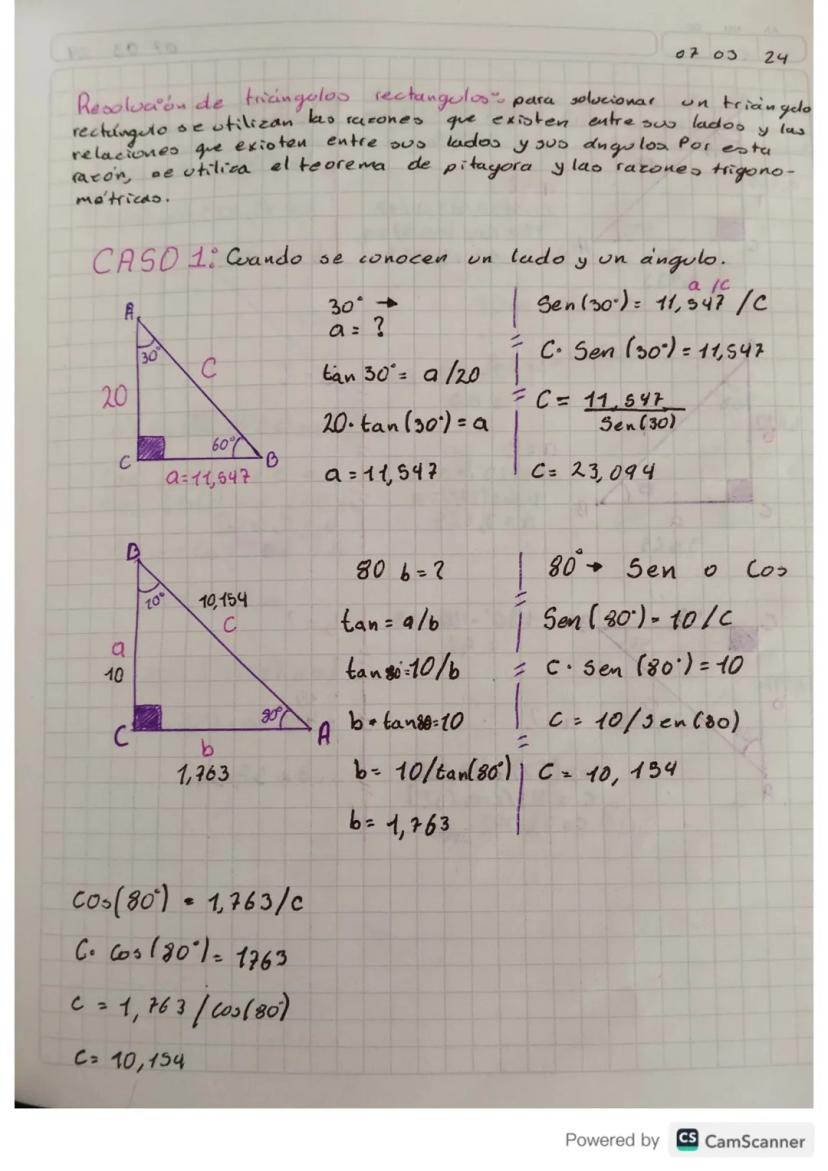 07 03 24
Resolución de triángulos rectangulos: para solucionar un triángulo
rectángulo se utilizan las razones que existen entre sus lados y las
relaciones que existen entre sus lados y sus ángulos. Por esta
razón, se utiliza el teorema de pitagora y las razones trigono-
métricas.
CASO 1: Cuando se conocen un lado y un ángulo.
A
30°
20
C
60°
C
B
a=11,547
30° →
a = ?
tan 30° = a/20
20·tan(30°) = a
a = 11,547
a/c
Sen(30°) = 11,547/C
C· Sen (30°) = 11,547
C = 11,547
Sen(30)
C = 23,094
B
10°
10,154
C
a
10
80°
C
A
b
1,763
80 b = ?
tan = a/b
tan 80° = 10/b
b·tan80=10
b = 10/tan(80°)
b = 1,763
80° → Sen o Cos
Sen(80°) = 10/C
C· Sen (80°) = 10
C = 10/Sen(80)
C = 10,154
Cos(80°) = 1,763/c
C· Cos(80°) = 1763
C = 1,763/Cos(80°)
C = 10,154
Powered by CS CamScanner